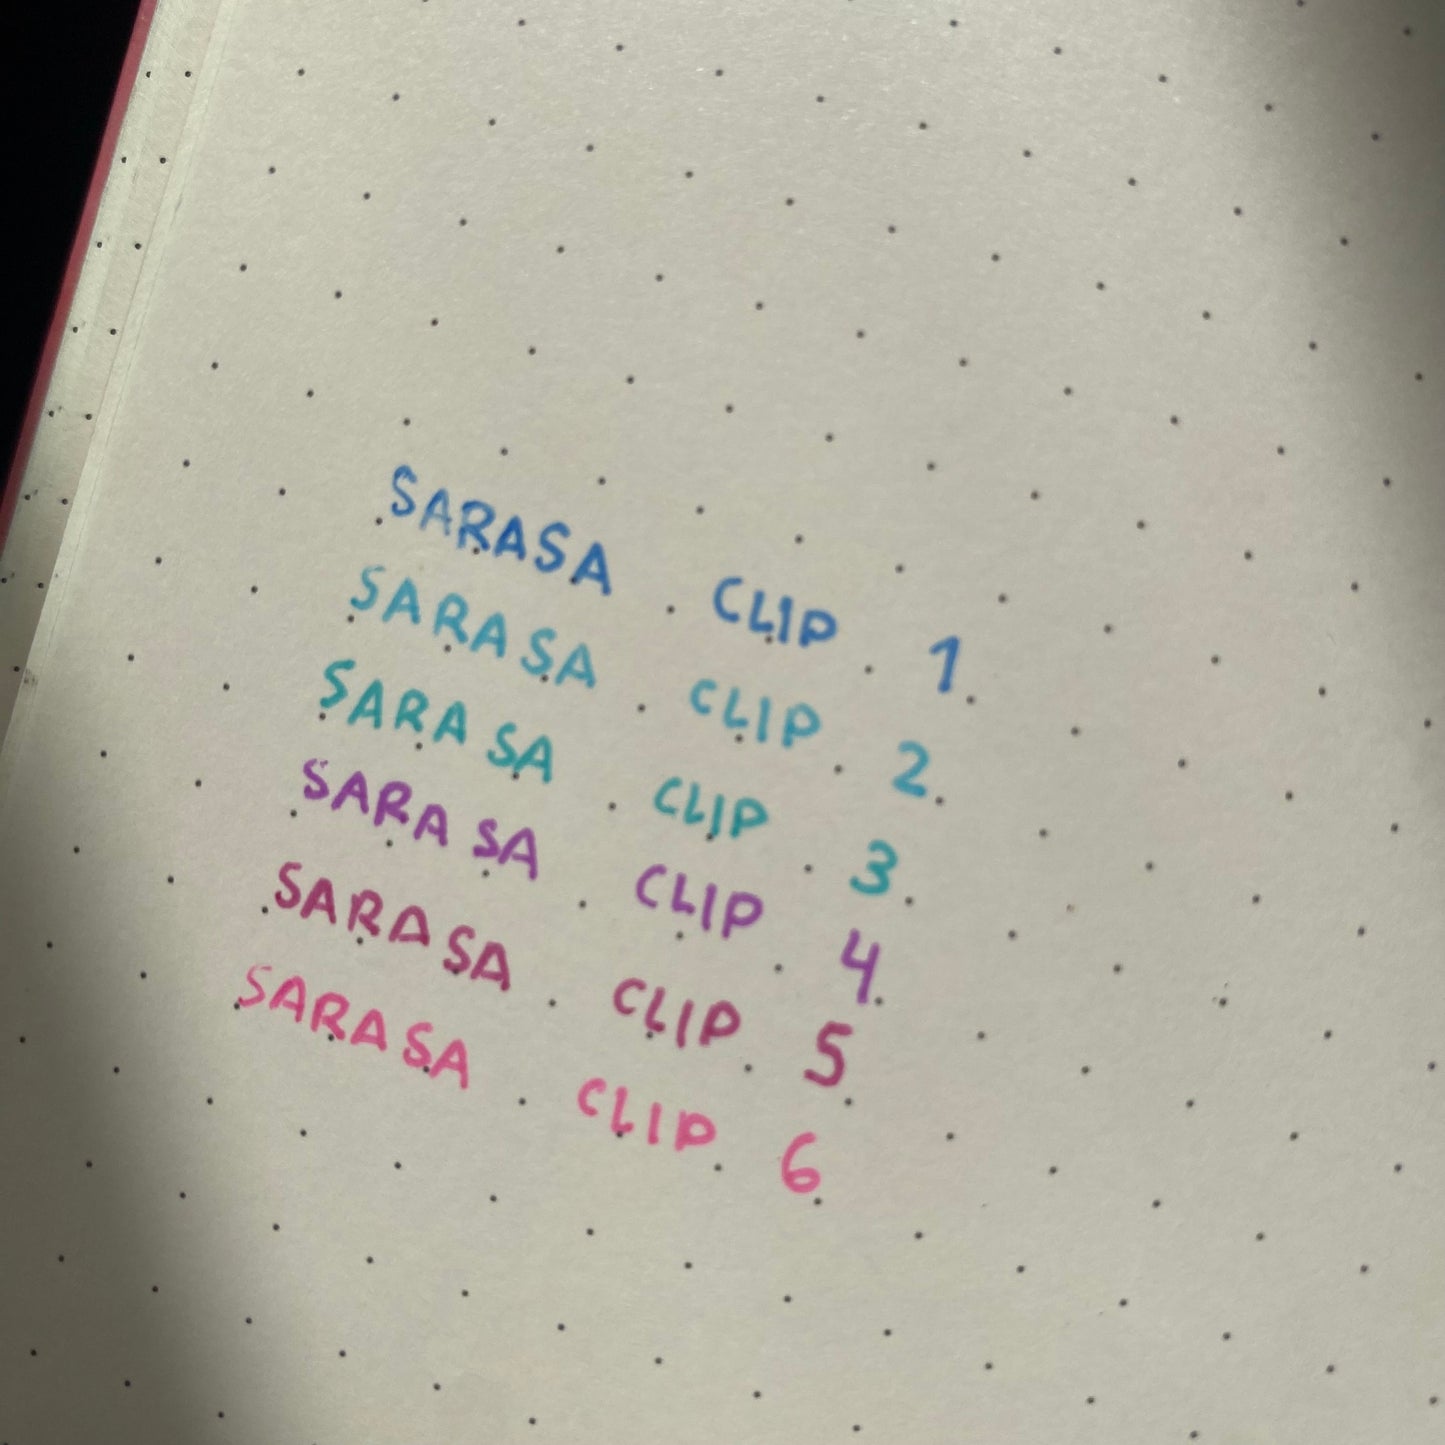 SARASA CLIP 1
SARASA CLIP 2
SARASA CLIP 3
SARASA CLIP 4
SARASA CLIP 5
SARASA CLIP 6